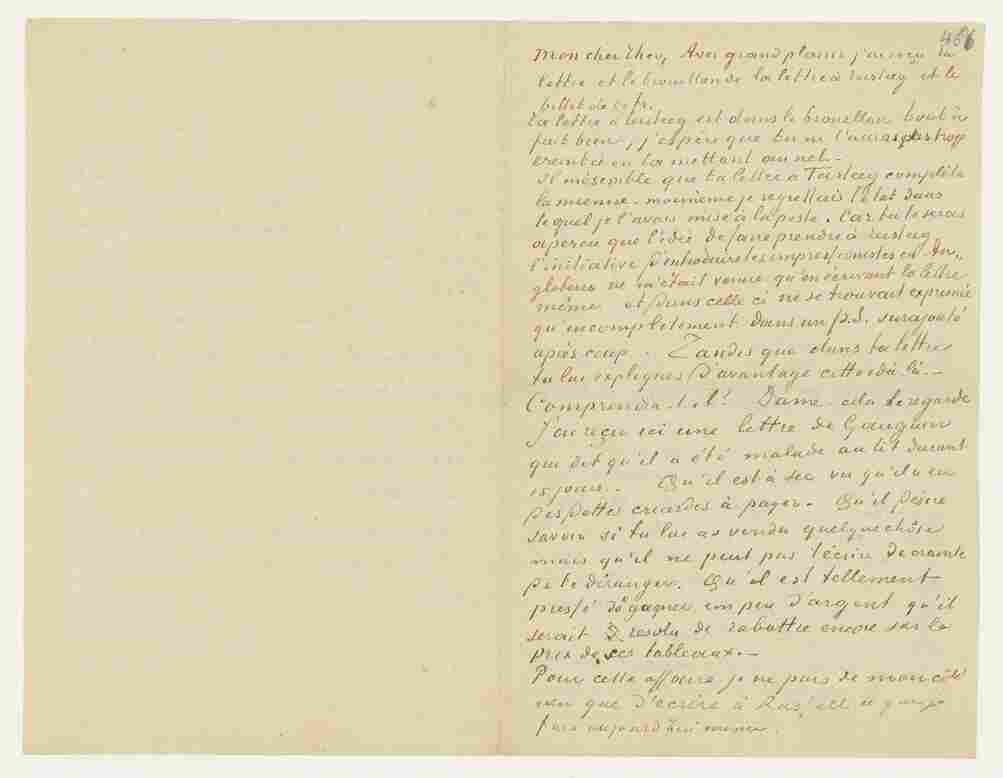 466
Mon cher Theo, Avec grand plaisir j'ai reçu ta
lettre et le brouillon de la lettre à Tersteeg et le
billet de 50 fr.
Ta lettre à Tersteeg est dans le brouillon tout à
fait bien, j'espère que tu ne l'auras pas trop
ereinté en la mettant au net. –
Il me semble que ta lettre à Tersteeg complète
la mienne – moi même je regrettais l'état dans
lequel je l'avais mise à la poste. Car tu te seras
aperçu que l'idée de faire prendre à Tersteeg
l'initiative d'introduire les impressionistes en An„
gleterre ne m'était venue qu'en écrivant la lettre
même et dans celle ci ne se trouvait exprimée
qu'incomplètement dans un p.S. surajouté
après coup. Tandis que dans ta lettre
tu lui expliques d'avantage cette idée là. –
Comprendra-t-il? Dame cela le regarde
J'ai reçu ici une lettre de Gauguin
qui dit qu'il a été malade au lit durant
15 jours. Qu'il est à sec vu qu'il a eu
des dettes criardes à payer. Qu'il désire
savoir si tu lui as vendu quelque chôse
mais qu'il ne peut pas t'écrire de crainte
de te déranger. Qu'il est tellement
pressé de gagner un peu d'argent qu'il
serait resolu de rabattre encore sur le
prix de ses tableaux. –
Pour cette affaire je ne puis de mon côté
rien que d'écrire à Russell ce que je
fais aujourd'hui même.